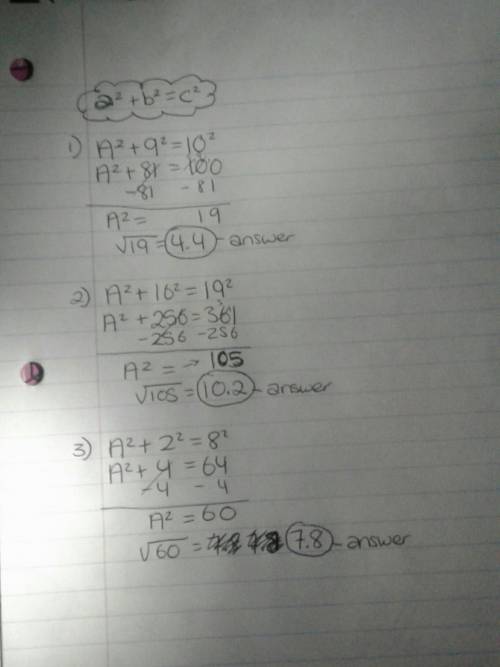 a² + b² = c²
1) A² + 9² = 10²
A² + 81 = 100
-81 -81
A² = 19
√19 = 4.4 - answer
2) A² + 16² = 19²
A² + 256 = 361
-256 -256
A² = → 105
√105 = 10.2 - answer
3) A² + 2² = 8²
A² + 4 = 64
-4 - 4
A² = 60
√60 = 7.8 - answer